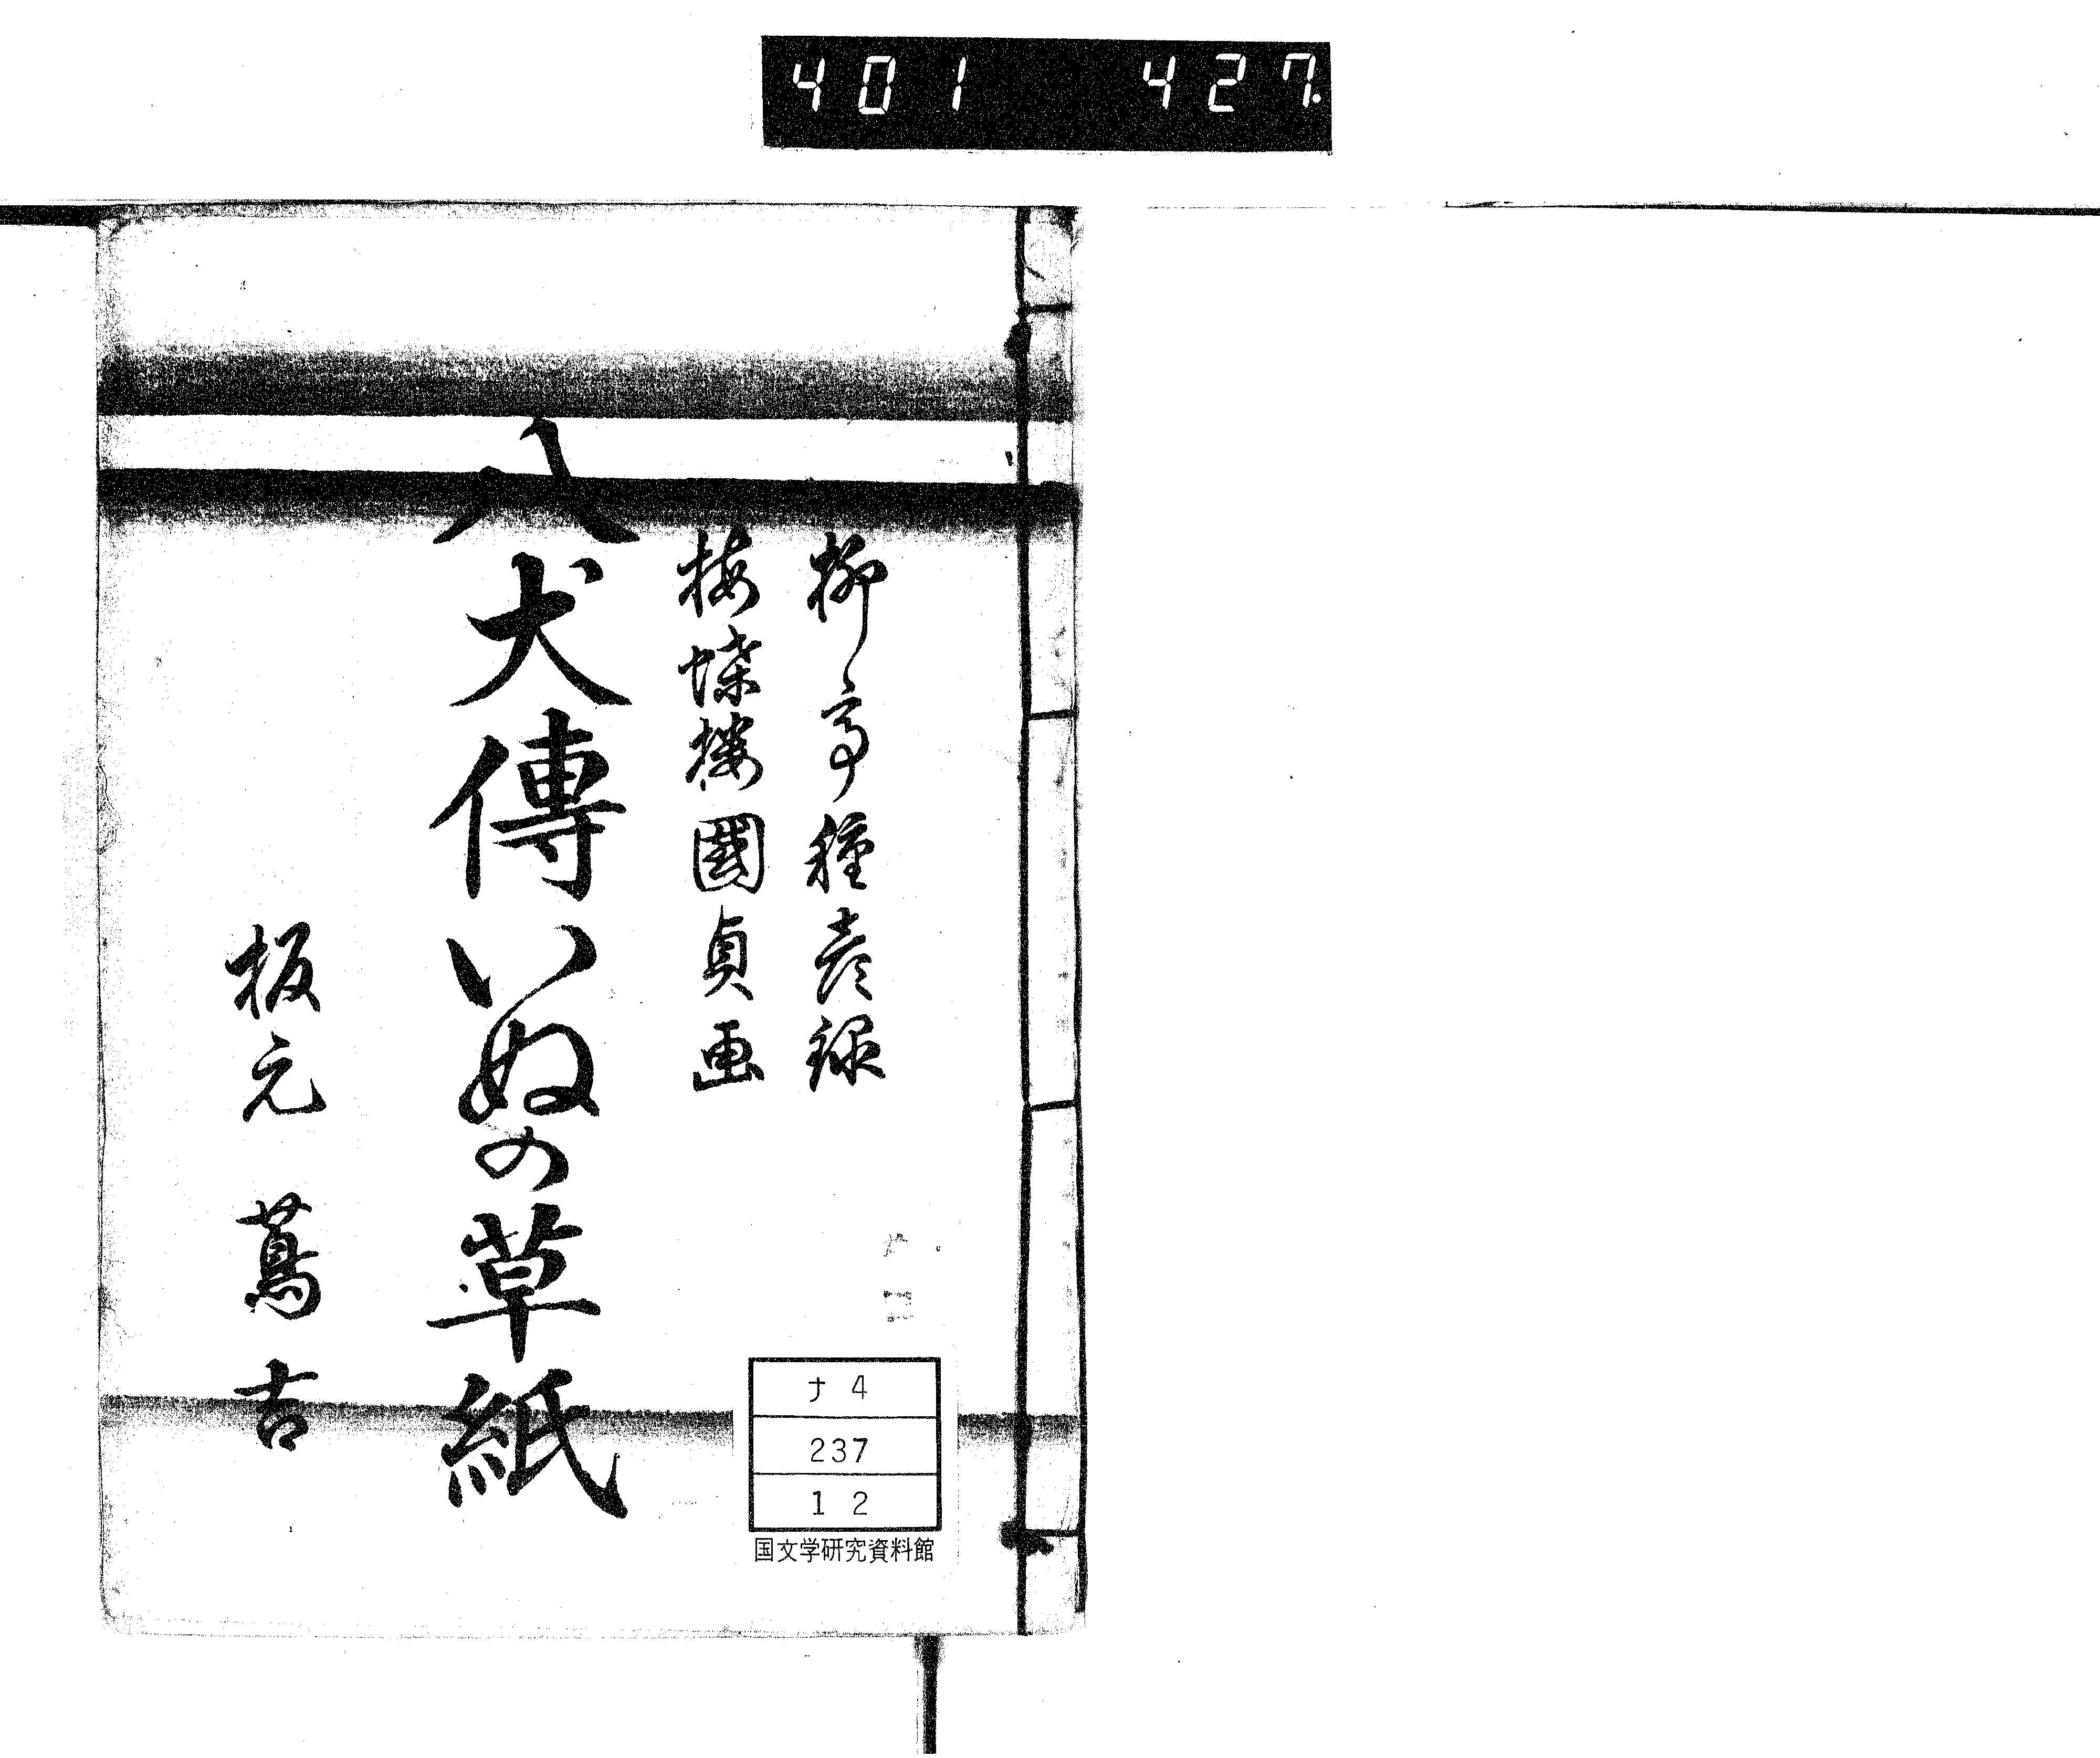 401 427.
柳亭種彦録
梅蝶楼國貞画
八犬傳いぬの草紙
板元 蔦吉
ナ 4
237
1 2
国文学研究資料館